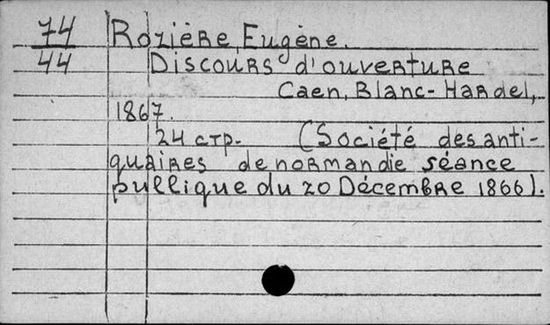 74 Rozière, Eugène.
44 Discours d'ouverture
Caen, Blanc-Hardel,
1867.
24 стр. (Société des anti-
quaires de normandie séance
pullique du 20 Décembre 1866).